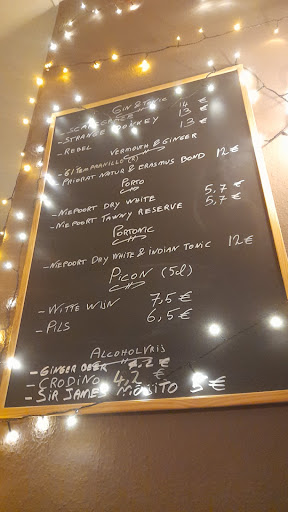 GIN & TONIC
- SCAPEGRACE 14 €
- STRANGE DONKEY 13 €
- REBEL 13 €
VERMOUTH & GINGER
- 61 TEMPRANILLO (R)
- PRIORAT NATUR & ERASMUS BOND 12 €
PORTO
- NIEPOORT DRY WHITE 5,7 €
- NIEPOORT TAWNY RESERVE 5,7 €
PORTONIC
- NIEPOORT DRY WHITE & INDIAN TONIC 12 €
PICON (5cl)
- WITTE WIJN 7,5 €
- PILS 6,5 €
ALCOHOLVRIJ
- GINGER BEER 4,2 €
- CRODINO 4,2 €
- SIR JAMES MOJITO 5 €